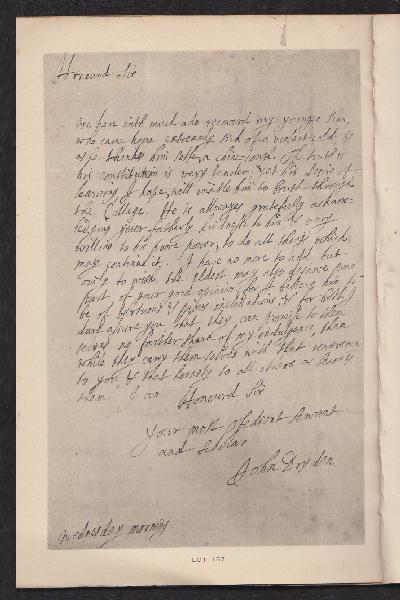 Honourd Sir
We have with much ado recovered my younger Sonn,
who came home extreamly sick of a violent cold, &
as he thinks him selfe, a chine-cough. The truth is
his constitution is very tender; yet his desire of
learning I hope, will inable him to brush through
the College. He is allwayes gratefully acknow-
ledging your fatherly kindnesse to him; & very
willing to his poore power, to do all things which
may continue it. I have no more to add, but
onely to wish the eldest may also deserve some
part of your good opinion; for I believe him to
be of vertuous & pious inclinations: & for both, I
dare assure you, that they can promise to them
selves no farther share of my indulgence, then
while they carry them selves with that reverence
to you, & that honesty to all others as becomes
them. I am
Honourd Sir
Your most obedient Servant
and Scholar
John Dryden.
Wednesday morning.
LOT 167